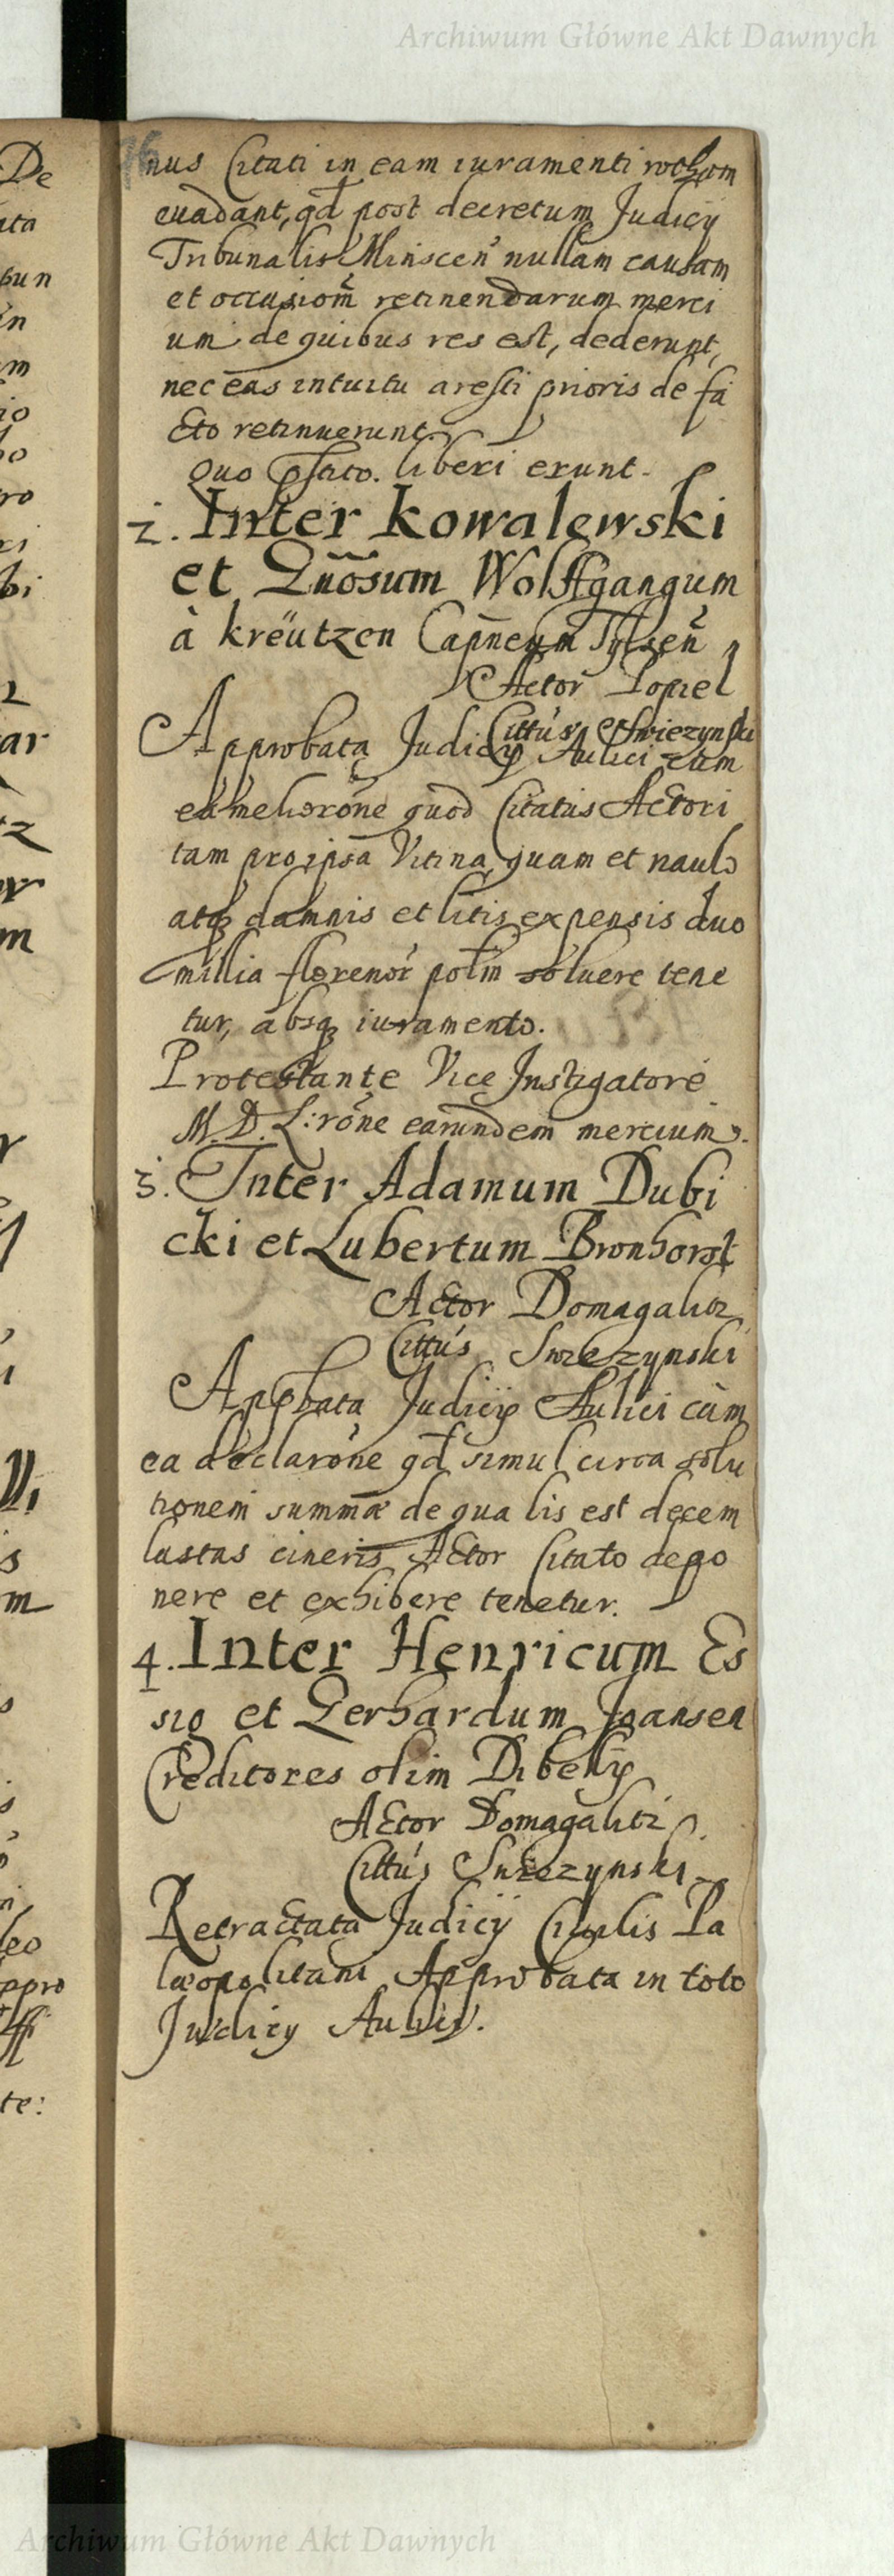 Archiwum Główne Akt Dawnych
De
nus Citati in eam iuramenti rotham
euadant, qd post decretum Judicij
Tribunalis Minscen nullam causam
et occasiom retinendarum merci
um de quibus res est, dederunt,
nec eas intuitu aresti prioris de fa
cto retinuerunt.
Quo pstito. liberi erunt.
2. Inter Kowalewski
et Gnosum Wolffgangum
à kreutzen Capneum Tylsen
Actor Popiel
Cittus Swiezynski
Approbata Judicij Aulici cum
ea meliorone quod Citatus Actori
tam pro ipsa Vitina, quam et naulo
atq damnis et litis expensis duo
millia florenor polm soluere tene
tur, absq iuramento.
Protestante Vice Instigatore
M. D. L: rone earundem mercium.
3. Inter Adamum Dubi
cki et Lubertum Bronhorst
Actor Domagalitz
Cittus Swiezynski
Appbata Judicij Aulici cum
ea declarone qd simul circa solu
tionem summæ de qua lis est decem
lastas cineris Actor Citato depo
nere et exhibere tenetur.
4. Inter Henricum Es
sig et Gerhardum Joansen
Creditores olim Dibelij
Actor Domagalitz
Cittus Swiezynski
Retractata Judicij Ciuilis Pa
læopolitani Approbata in toto
Judicij Aulici.
Archiwum Główne Akt Dawnych